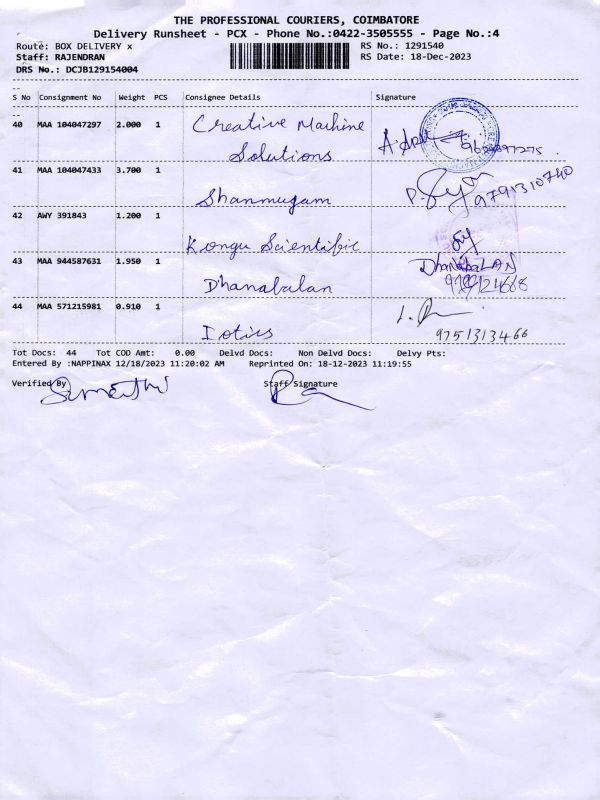 THE PROFESSIONAL COURIERS, COIMBATORE
Delivery Runsheet - PCX - Phone No.:0422-3505555 - Page No.:4
Route: BOX DELIVERY x RS No.: 1291540
Staff: RAJENDRAN RS Date: 18-Dec-2023
DRS No.: DCJB129154004
S No Consignment No Weight PCS Consignee Details Signature
40 MAA 104047297 2.000 1 Creative Machine
Solutions
41 MAA 104047433 3.700 1
Shanmugam 9791310740
42 AWY 391843 1.200 1
Kongu Scientific
43 MAA 944587631 1.950 1 Dhanabalan
Dhanabalan
44 MAA 571215981 0.910 1
Iotics 9751313466
Tot Docs: 44 Tot COD Amt: 0.00 Delvd Docs: Non Delvd Docs: Delvy Pts:
Entered By :NAPPINAX 12/18/2023 11:20:02 AM Reprinted On: 18-12-2023 11:19:55
Verified By Staff Signature